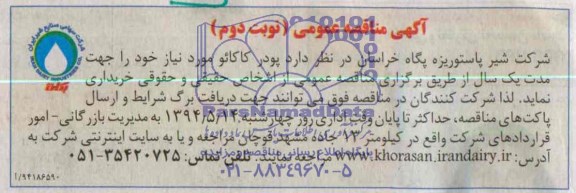 آگهی مناقصه عمومی (نوبت دوم)
شرکت شیر پاستوریزه پگاه خراسان در نظر دارد پودر کاکائو مورد نیاز خود را جهت
مدت یک سال از طریق برگزاری مناقصه عمومی از اشخاص حقیقی و حقوقی خریداری
نماید. لذا شرکت کنندگان در مناقصه فوق می توانند جهت دریافت برگ شرایط و ارسال
پاکت‌های مناقصه، حداکثر تا پایان وقت اداری روز چهارشنبه ۱۳۹۴/۵/۱۴ به مدیریت بازرگانی- امور
قراردادهای شرکت واقع در کیلومتر ۱۳ جاده مشهد قوچان مراجعه و یا به سایت اینترنتی شرکت به
آدرس: www.khorasan.irandairy.ir مراجعه نمایند. تلفن تماس: ۳۵۴۲۰۷۲۵-۰۵۱
۱/۹۴۱۸۶۵۹۰
شرکت سهامی صنایع شیر ایران
ParsNamadData
پایگاه اطلاع رسانی مناقصه و مزایده
۰۲۱-۸۸۳۴۹۶۷۰-۵